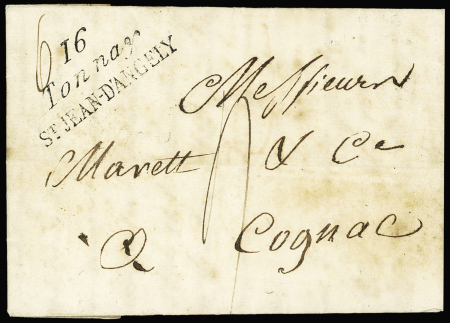 16
Tonnay
ST JEAN-D'ANGELY
Messieurs
Marett & Ce
à Cognac